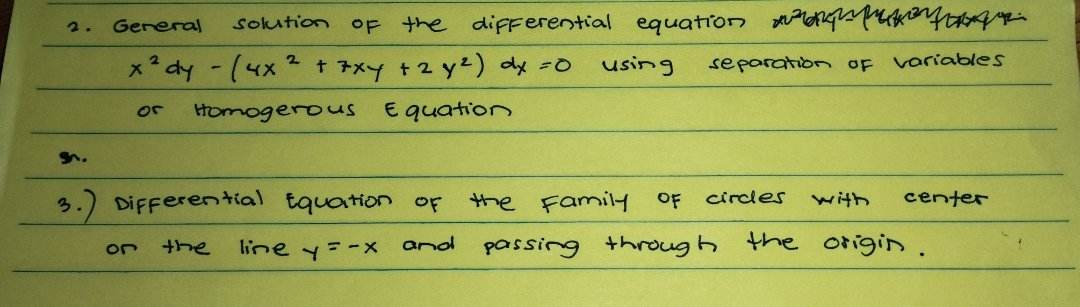 2. General solution of the differential equation
x² dy - (4x² + 7xy + 2y²) dx = 0 using separation of variables
or Homogerous Equation
3.) Differential Equation of the Family of circles with center
on the line y = -x and passing through the origin.